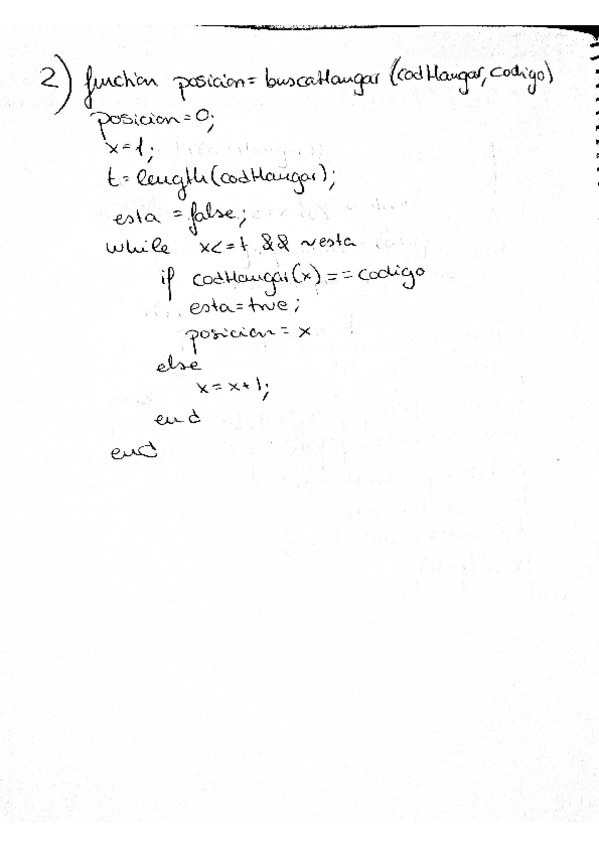 2) function posicion = buscaHangar (codHangar, codigo)
posicion = 0;
x = 1;
t = length(codHangar);
esta = false;
while x <= t && ~esta
if codHangar(x) == codigo
esta = true;
posicion = x
else
x = x + 1;
end
end